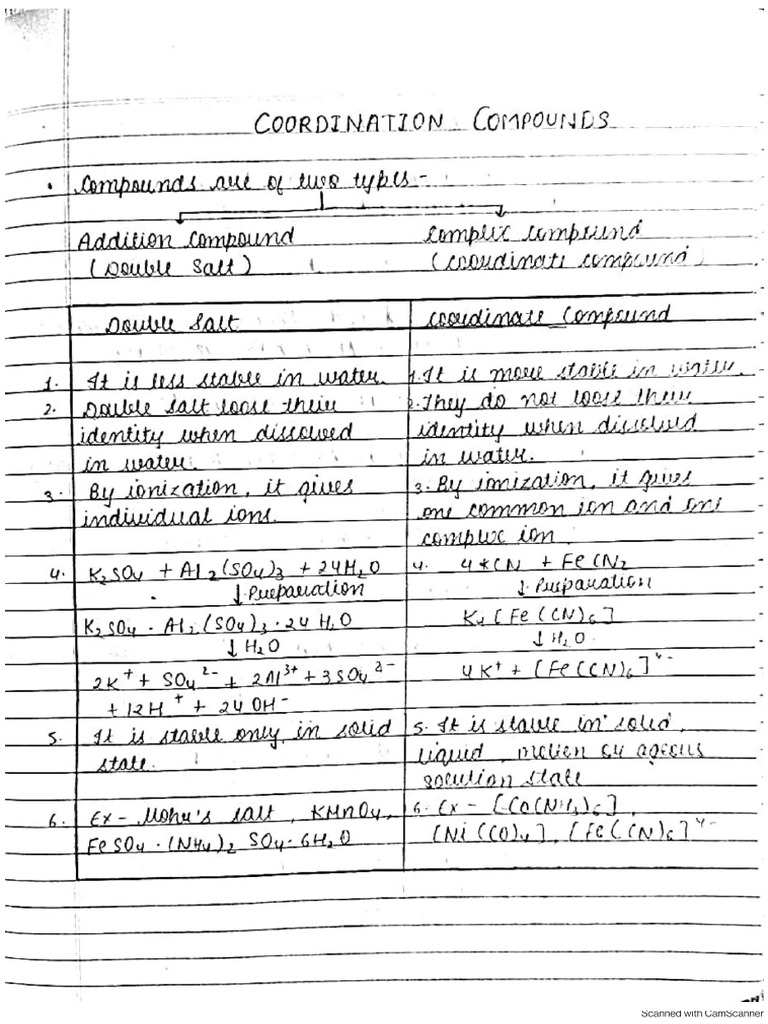 COORDINATION COMPOUNDS
• Compounds are of two types -
Addition Compound
(Double Salt)
Complex Compound
(Coordinate Compound)
Double Salt
Coordinate Compound
1. It is less stable in water.
1. It is more stable in water.
2. Double salt loose their
identity when dissolved
in water.
2. They do not loose their
identity when dissolved
in water.
3. By ionization, it gives
individual ions.
3. By ionization, it gives
one common ion and one
complex ion.
4. K₂SO₄ + Al₂(SO₄)₃ + 24H₂O
↓ Preparation
K₂SO₄ · Al₂(SO₄)₃ · 24 H₂O
↓ H₂O
2K⁺ + SO₄²⁻ + 2Al³⁺ + 3SO₄²⁻
+ 12H⁺ + 24OH⁻
4. 4KCN + FeCN₂
↓ Preparation
K₄[Fe(CN)₆]
↓ H₂O
4K⁺ + [Fe(CN)₆]⁴⁻
5. It is stable only in solid
state.
5. It is stable in solid,
liquid, molten or aqeous
solution state
6. Ex - Mohr's salt, KMnO₄,
FeSO₄ · (NH₄)₂ SO₄ · 6H₂O
6. Ex - [Co(NH₃)₆],
[Ni(CO)₄], [Fe(CN)₆]⁴⁻
Scanned with CamScanner